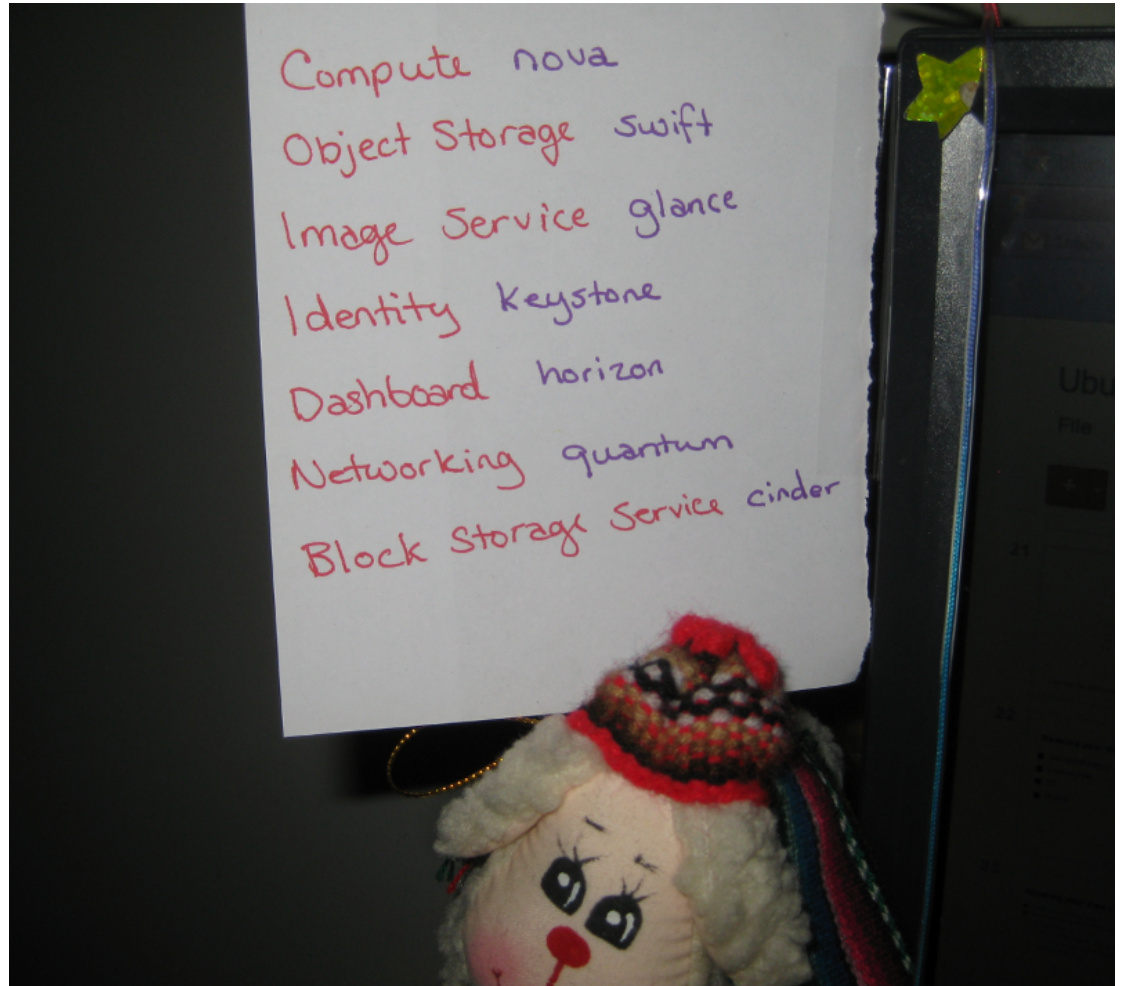 Compute nova
Object Storage swift
Image Service glance
Identity keystone
Dashboard horizon
Networking quantum
Block Storage Service cinder
Ubu
File
21
22